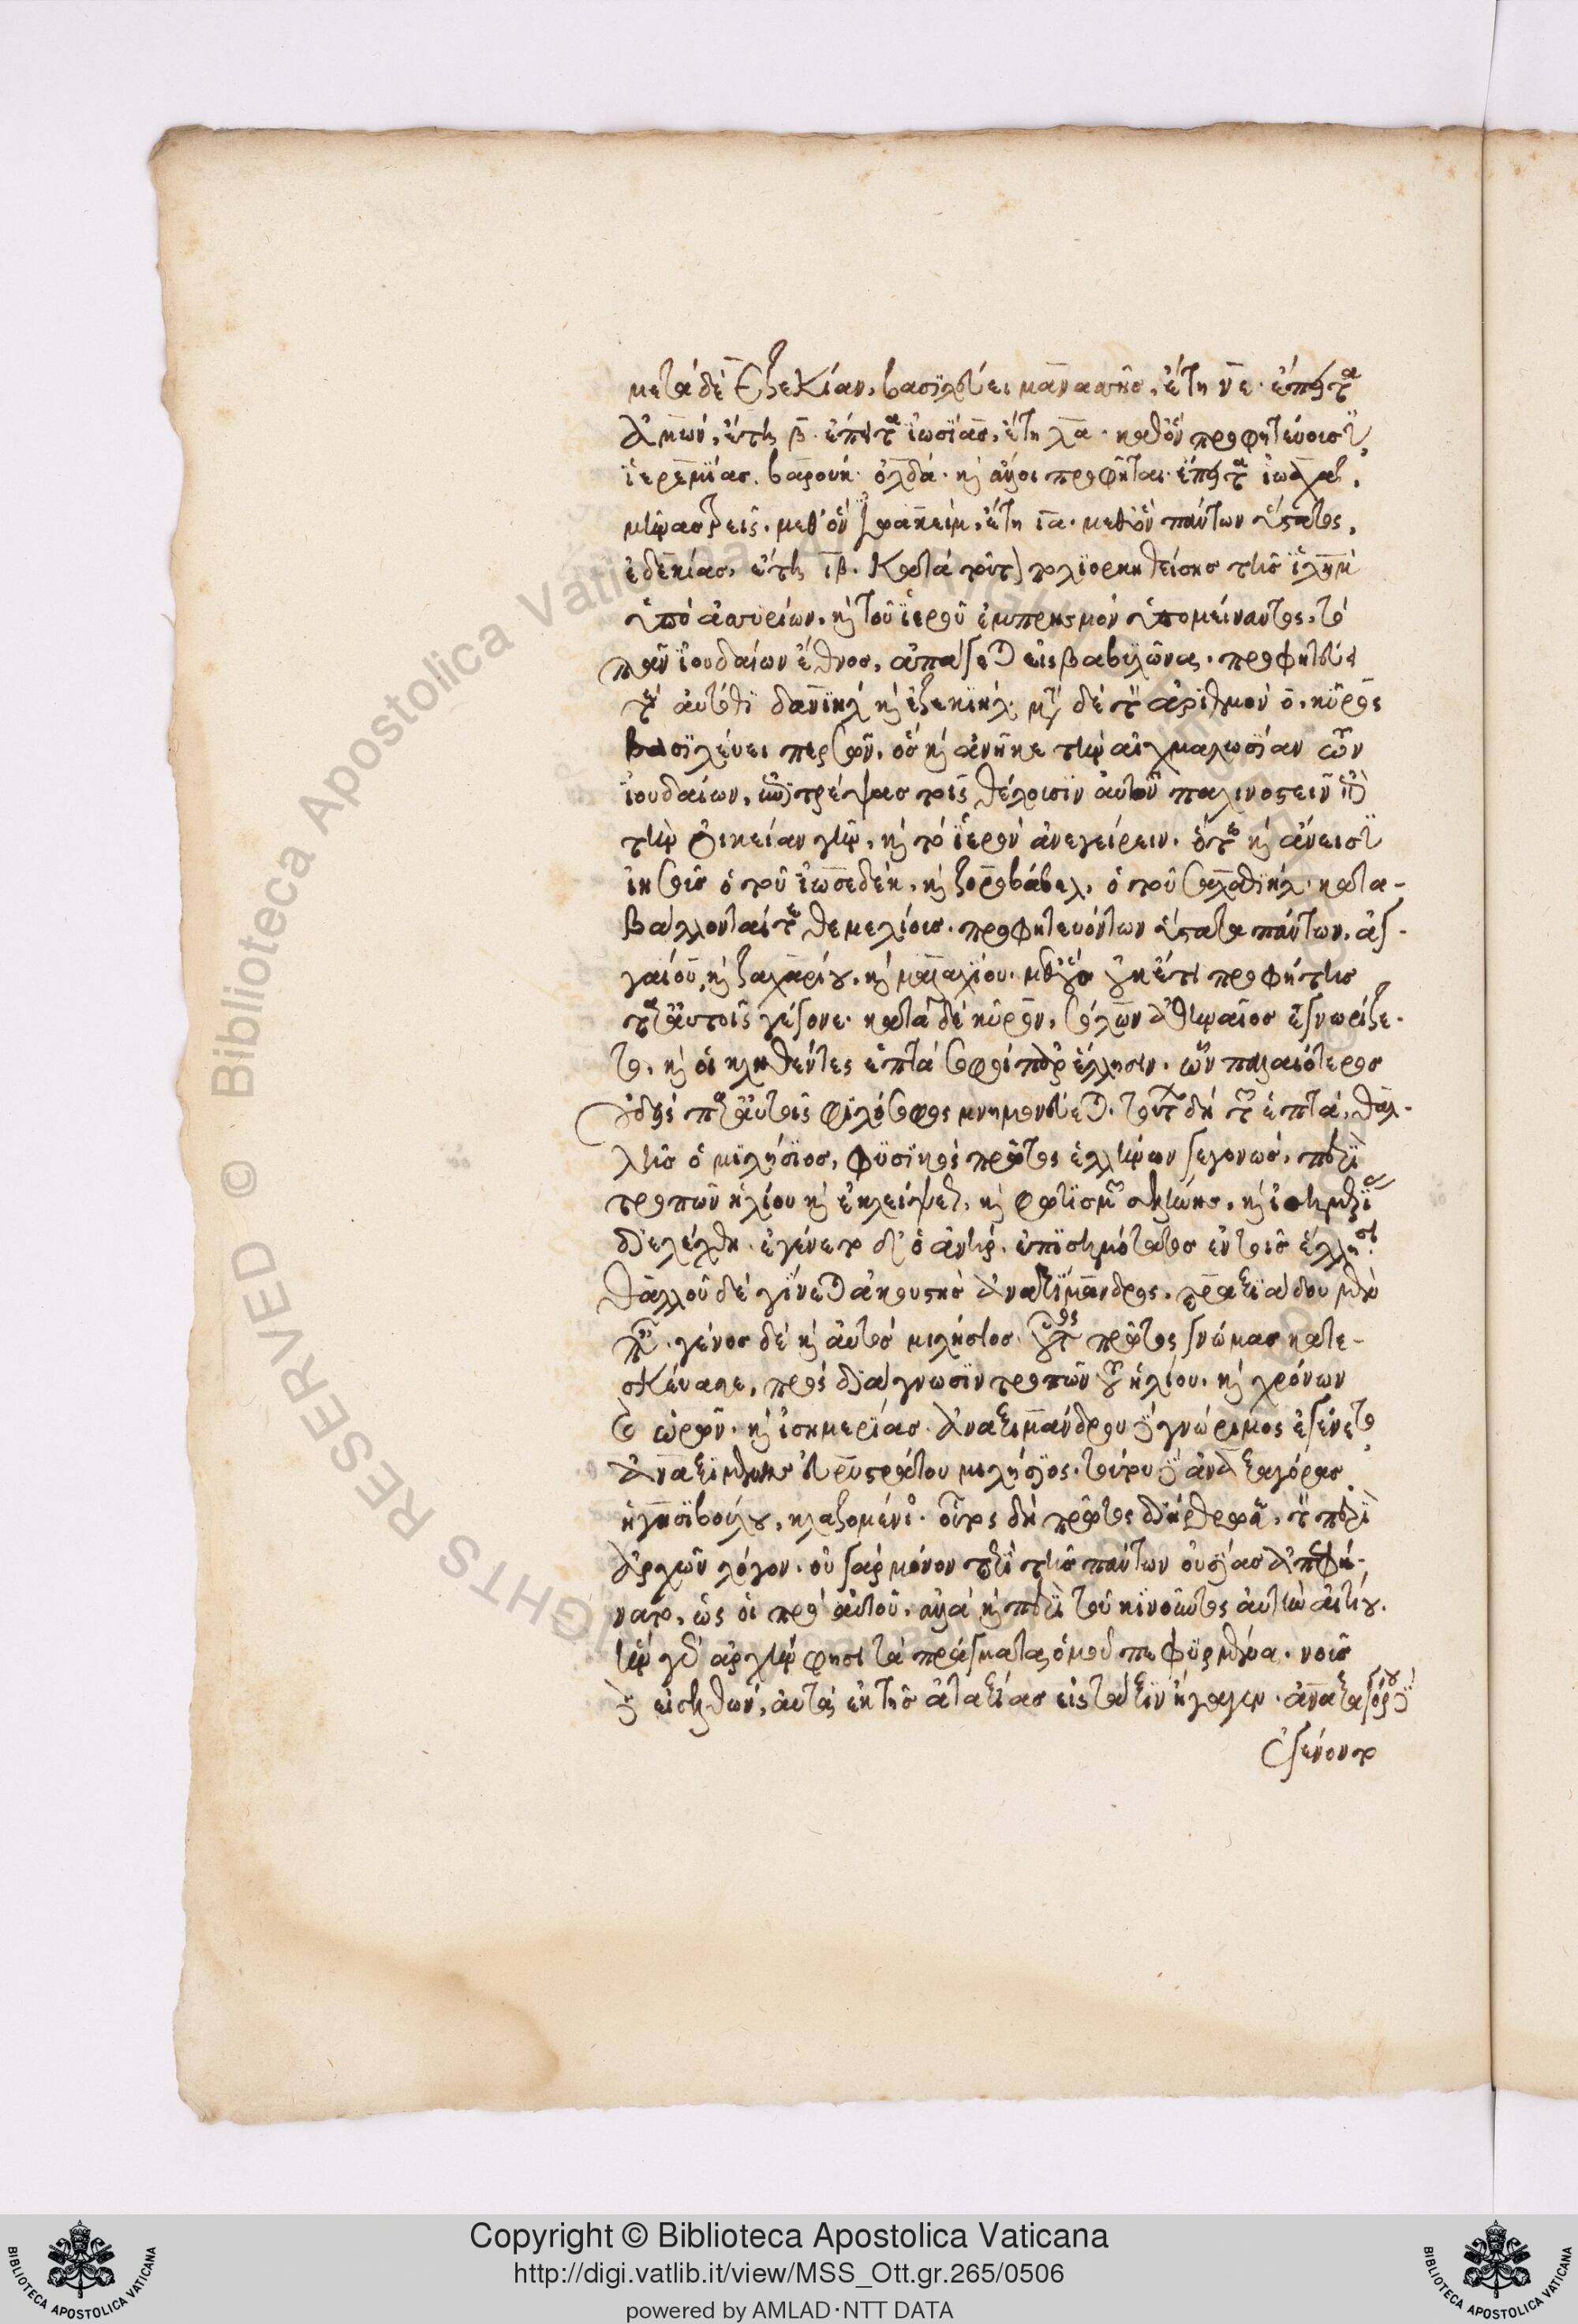 μετὰ δὲ Ἐζεκίαν, βασιλεύει μανασσῆς, ἔτη νε. ἔπειτα
Ἀμὼν, ἔτη β. ἔπειτα ἰωσίας, ἔτη λα. καθ' ὃν προφητεύουσιν
ἱερεμίας. βαρούχ. ὀλδά. καὶ ἄλλοι προφῆται. ἔπειτα ἰωάχας,
μῆνας τρεῖς. μεθ' ὃν ἰωακεὶμ, ἔτη ια. μεθ' ὃν πάντων ὕστατος,
ἐδεκίας, ἔτη ιβ. κατὰ τοῦτον πολιορκηθείσης τῆς ἱλημ
ὑπὸ ἀσσυρίων. καὶ τοῦ ἱεροῦ ἐμπρησμὸν ὑπομείναντος, τὸ
πᾶν ἰουδαίων ἔθνος, ἀπάγεται εἰς βαβυλῶνας. προφητεύει
τε αὐτόθι δανιὴλ καὶ ἐζεκιήλ. μετὰ δὲ τὸν ἀριθμὸν ο, κῦρος
βασιλεύει περσῶν, ὃς καὶ ἀνῆκε τὴν αἰχμαλωσίαν τῶν
ἰουδαίων, ἐπιτρέψας τοῖς θέλουσιν αὐτῶν παλινοστεῖν ἐπὶ
τὴν οἰκείαν γῆν, καὶ τὸ ἱερὸν ἀνεγείρειν. ὅτε καὶ ἄνεισιν
ἰησοῦς ὁ τοῦ ἰωσεδὲκ, καὶ ζοροβάβελ, ὁ τοῦ σαλαθιήλ. κατα-
βάλλονταί τε θεμελίους. προφητευόντων ὕστατα πάντων, ἀγ-
γαίου, καὶ ζαχαρίου, καὶ μαλαχίου. μεθ' οὓς οὐκέτι προφήτης
παρ' αὐτοῖς γέγονε. κατὰ δὲ κῦρον, σόλων ἀθηναῖος ἐγνωρίζε-
το, καὶ οἱ κληθέντες ἑπτὰ σοφοὶ παρ' ἕλλησιν. ὧν παλαιότερος
οὐδεὶς παρ' αὐτοῖς φιλόσοφος μνημονεύεται. τούτων δὴ τῶν ἑπτὰ, θαλ-
λῆς ὁ μιλήσιος, φυσικὸς πρῶτος ἑλλήνων γεγονὼς, περὶ
τροπῶν ἡλίου καὶ ἐκλείψεως, καὶ φωτισμῶν σελήνης, καὶ ἰσημερίας
διελέχθη. ἐγένετο δ' ὁ ἀνὴρ, ἐπισημότατος ἐν τοῖς ἕλλησι.
θαλλοῦ δὲ γίνεται ἀκουστὴς ἀναξίμανδρος, πραξιάδου μὲν
παῖς. γένος δὲ καὶ αὐτὸς μιλήσιος. οὗτος πρῶτος γνώμας κατε-
σκέυασε, πρὸς διάγνωσιν τροπῶν τοῦ ἡλίου. καὶ χρόνων
καὶ ὡρῶν. καὶ ἰσημερίας. ἀναξιμάνδρου δὲ γνώριμος ἐγένετο
ἀναξιμένης εὐρυστράτου μιλήσιος. τούτου δὲ ἀναξαγόρας
ἡγησιβούλου, κλαζομένιος. οὗτος δὴ πρῶτος διήρθρωσε, τὸν περὶ
ἀρχῶν λόγον. οὐ γὰρ μόνον περὶ τῆς πάντων οὐσίας ἀπεφή-
νατο, ὡς οἱ πρὸ αὐτοῦ. ἀλλὰ καὶ περὶ τοῦ κινοῦντος αὐτὴν αἰτίου.
ἦν γὰρ ἀρχὴν φησὶ τὰ πράγματα ὁμοῦ πεφυρμένα. νοῦς
δὲ εἰσελθὼν, αὐτὰ ἐκ τῆς ἀταξίας εἰς τάξιν ἤγαγεν. ἀναξαγόρου δὲ
ἐγένοντο
Copyright © Biblioteca Apostolica Vaticana
http://digi.vatlib.it/view/MSS_Ott.gr.265/0506
powered by AMLAD·NTT DATA